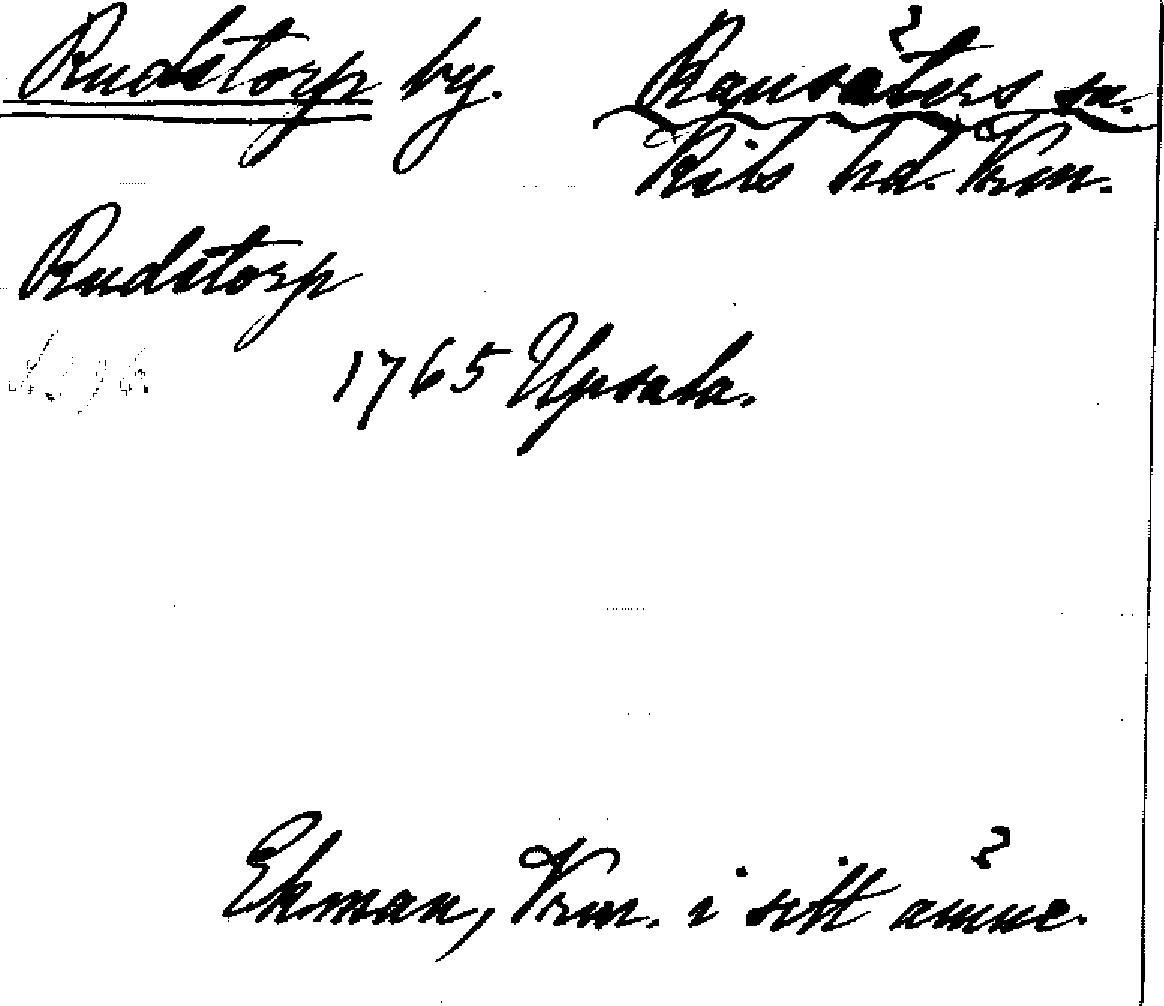 Rudstorp by. Ransäters sn.
Kils hd. Vrm.
Rudstorp
1765 Upsala.
Ekman, Vrm. i sitt ämne.